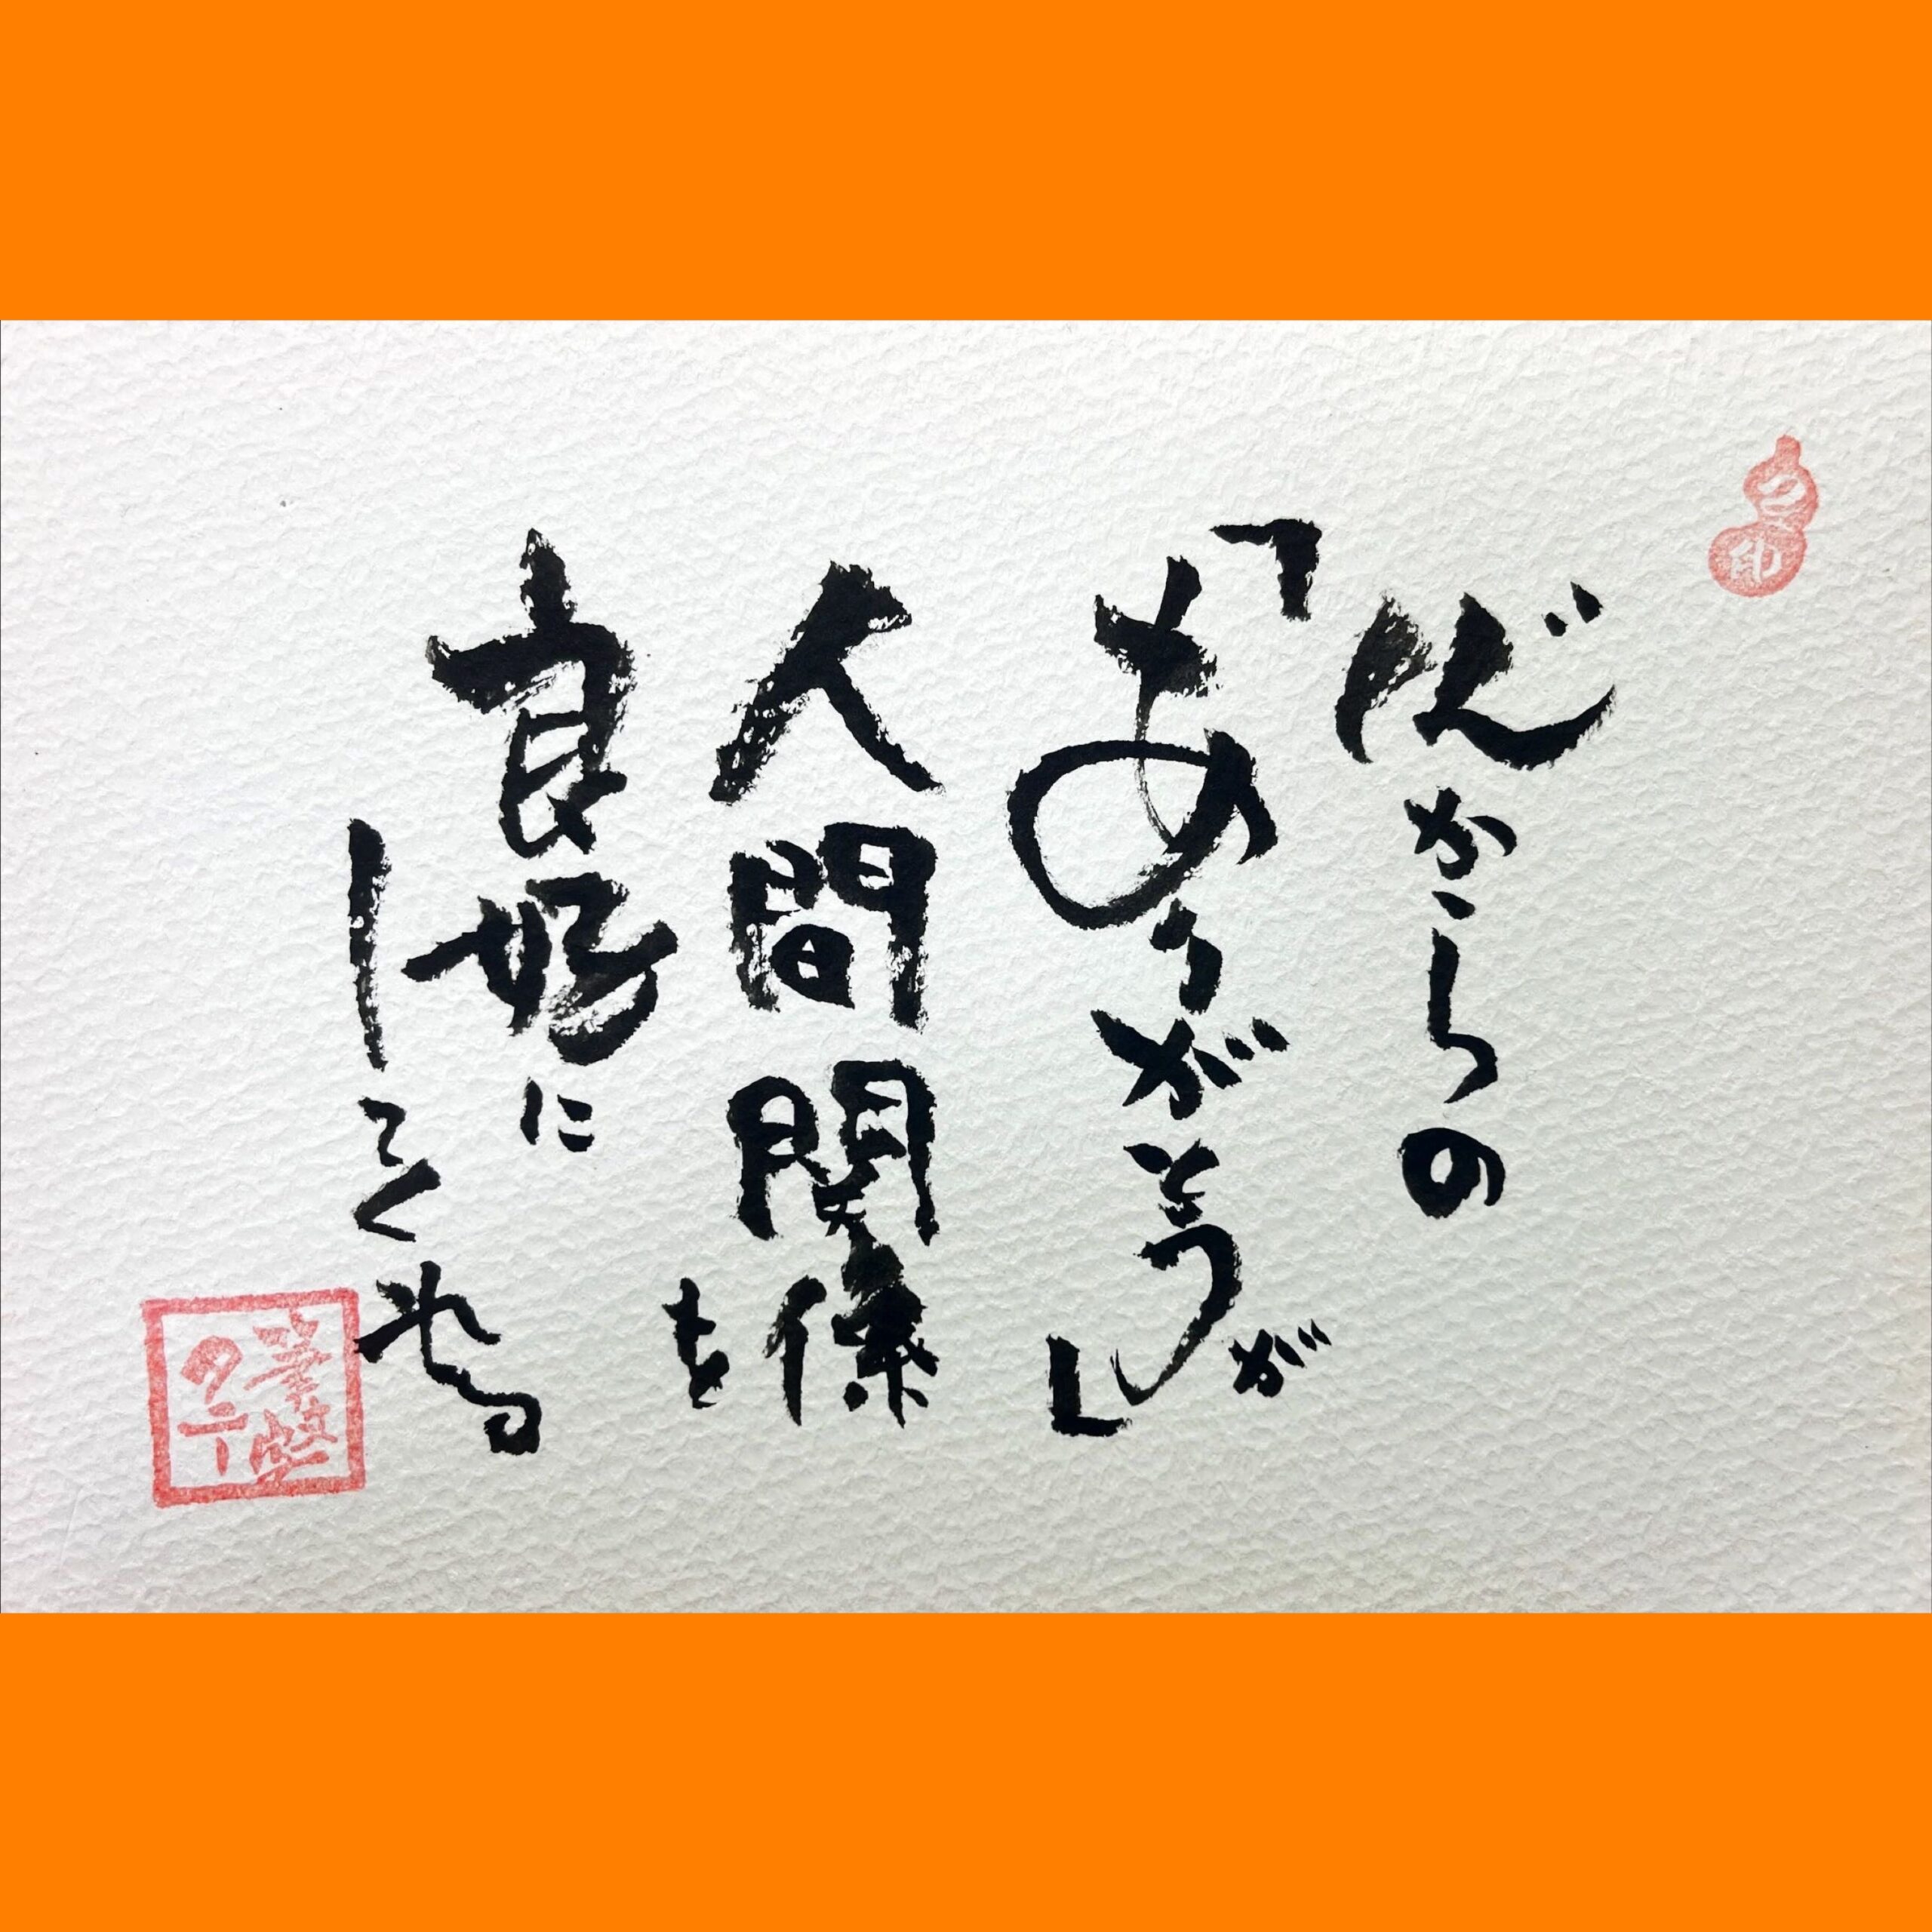 心からの
「ありがとう」が
人間関係を
良好に
してくれる